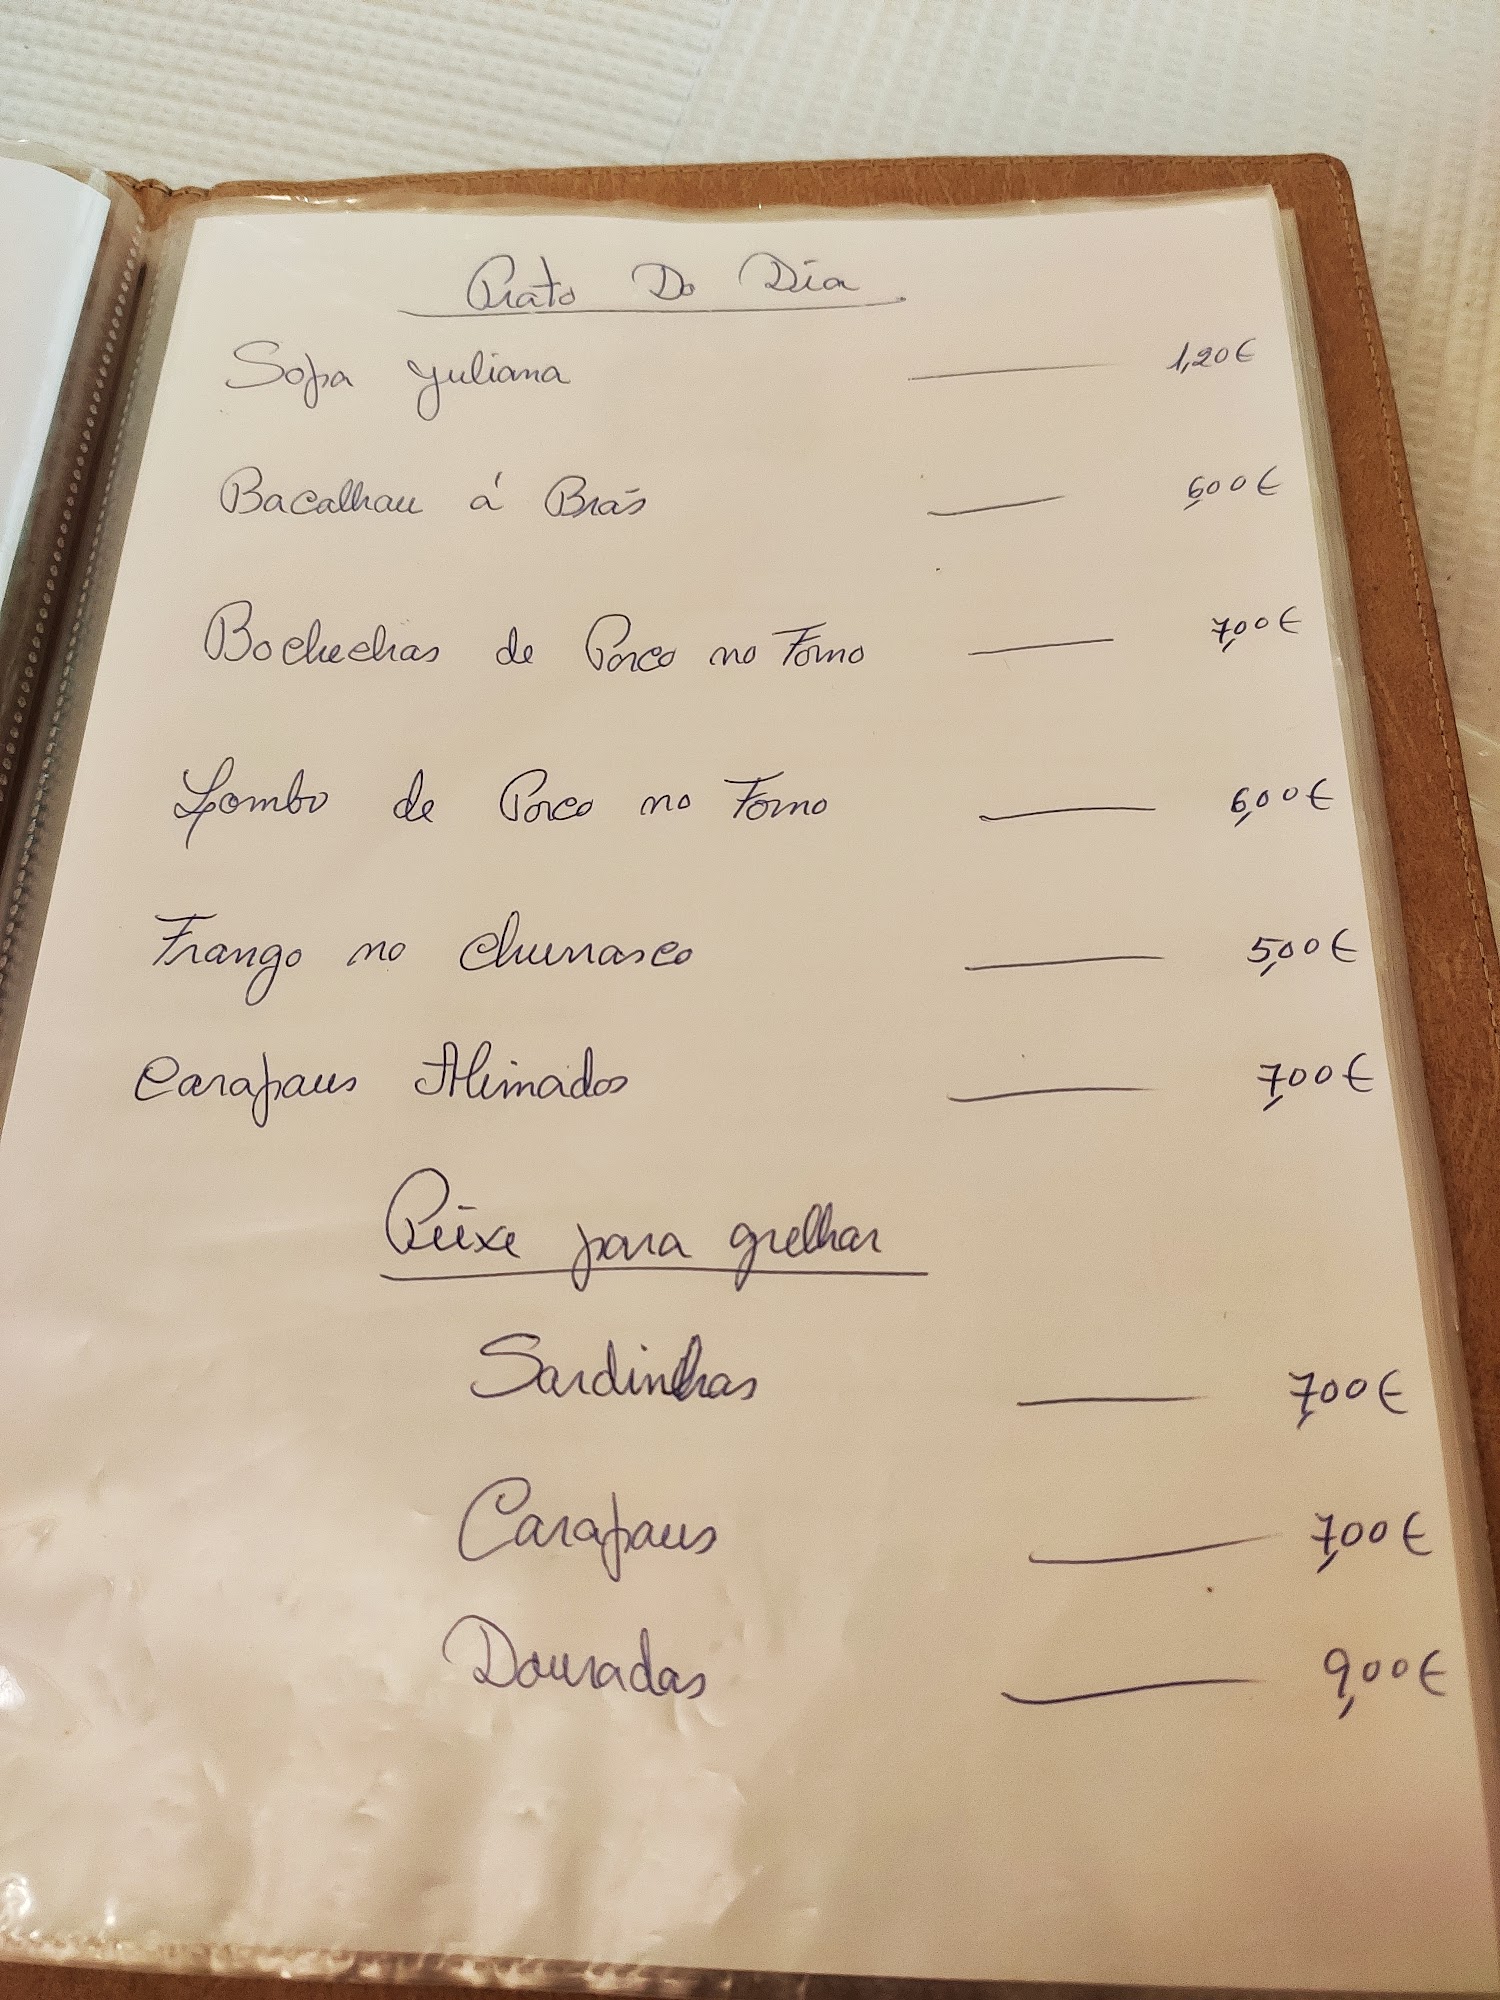 Prato Do Dia
Sopa Juliana — 1,20€
Bacalhau á Brás — 6,00€
Bochechas de Porco no Forno — 7,00€
Lombo de Porco no Forno — 6,00€
Frango no Churrasco — 5,00€
Carapaus Alimados — 7,00€
Peixe para grelhar
Sardinhas — 7,00€
Carapaus — 7,00€
Douradas — 9,00€